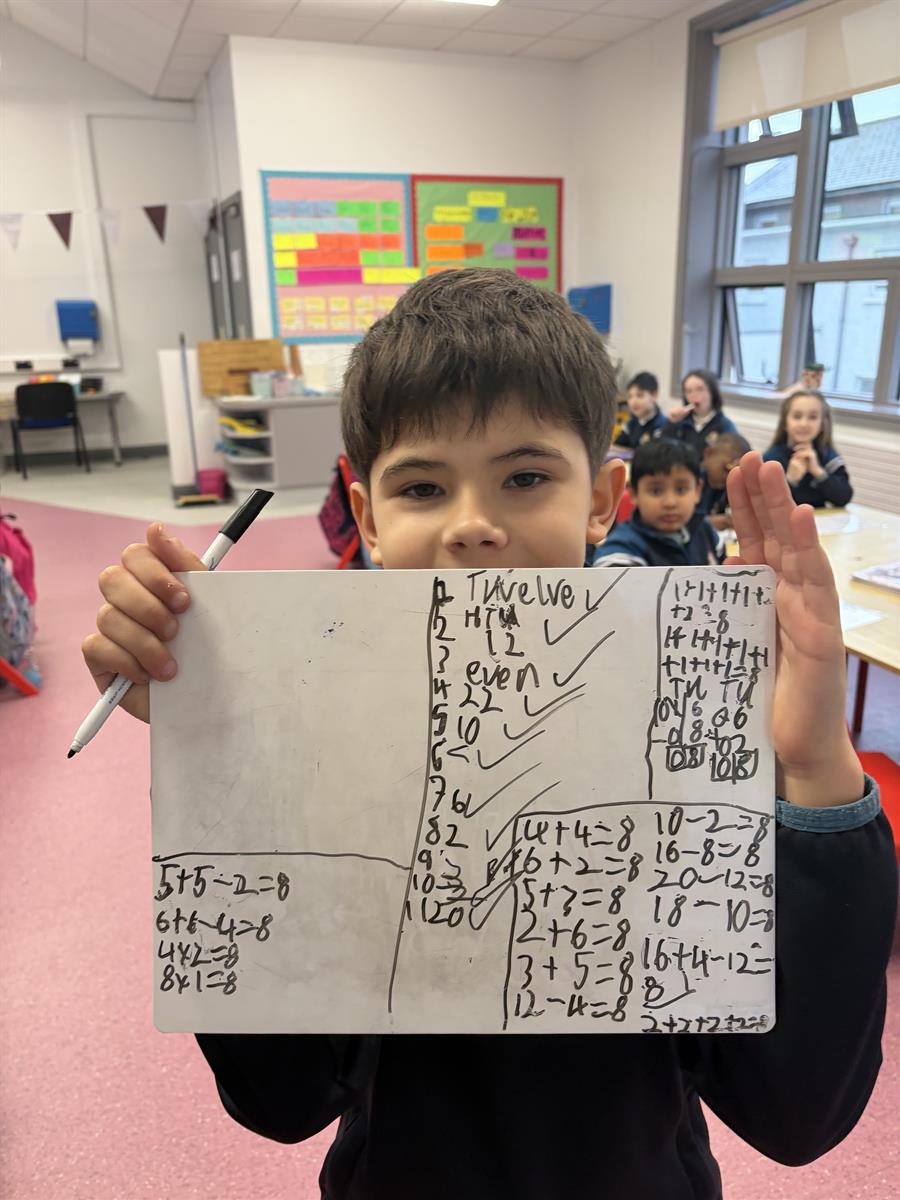 1 Twelve
2 HTU
12
3 even
4 22
5 10
6 <
7 6
8 2
9
10
11 20
1+1+1+1+
+2=8
1+1+1+1+1
+1+1+1=8
TU TU
16 06
-08 +02
08 08
5+5-2=8
6+6-4=8
4x2=8
8x1=8
4+4=8
6+2=8
5+3=8
2+6=8
3+5=8
12-4=8
10-2=8
16-8=8
20-12=8
18-10=8
16+4-12=
8
2+2+2+2=8